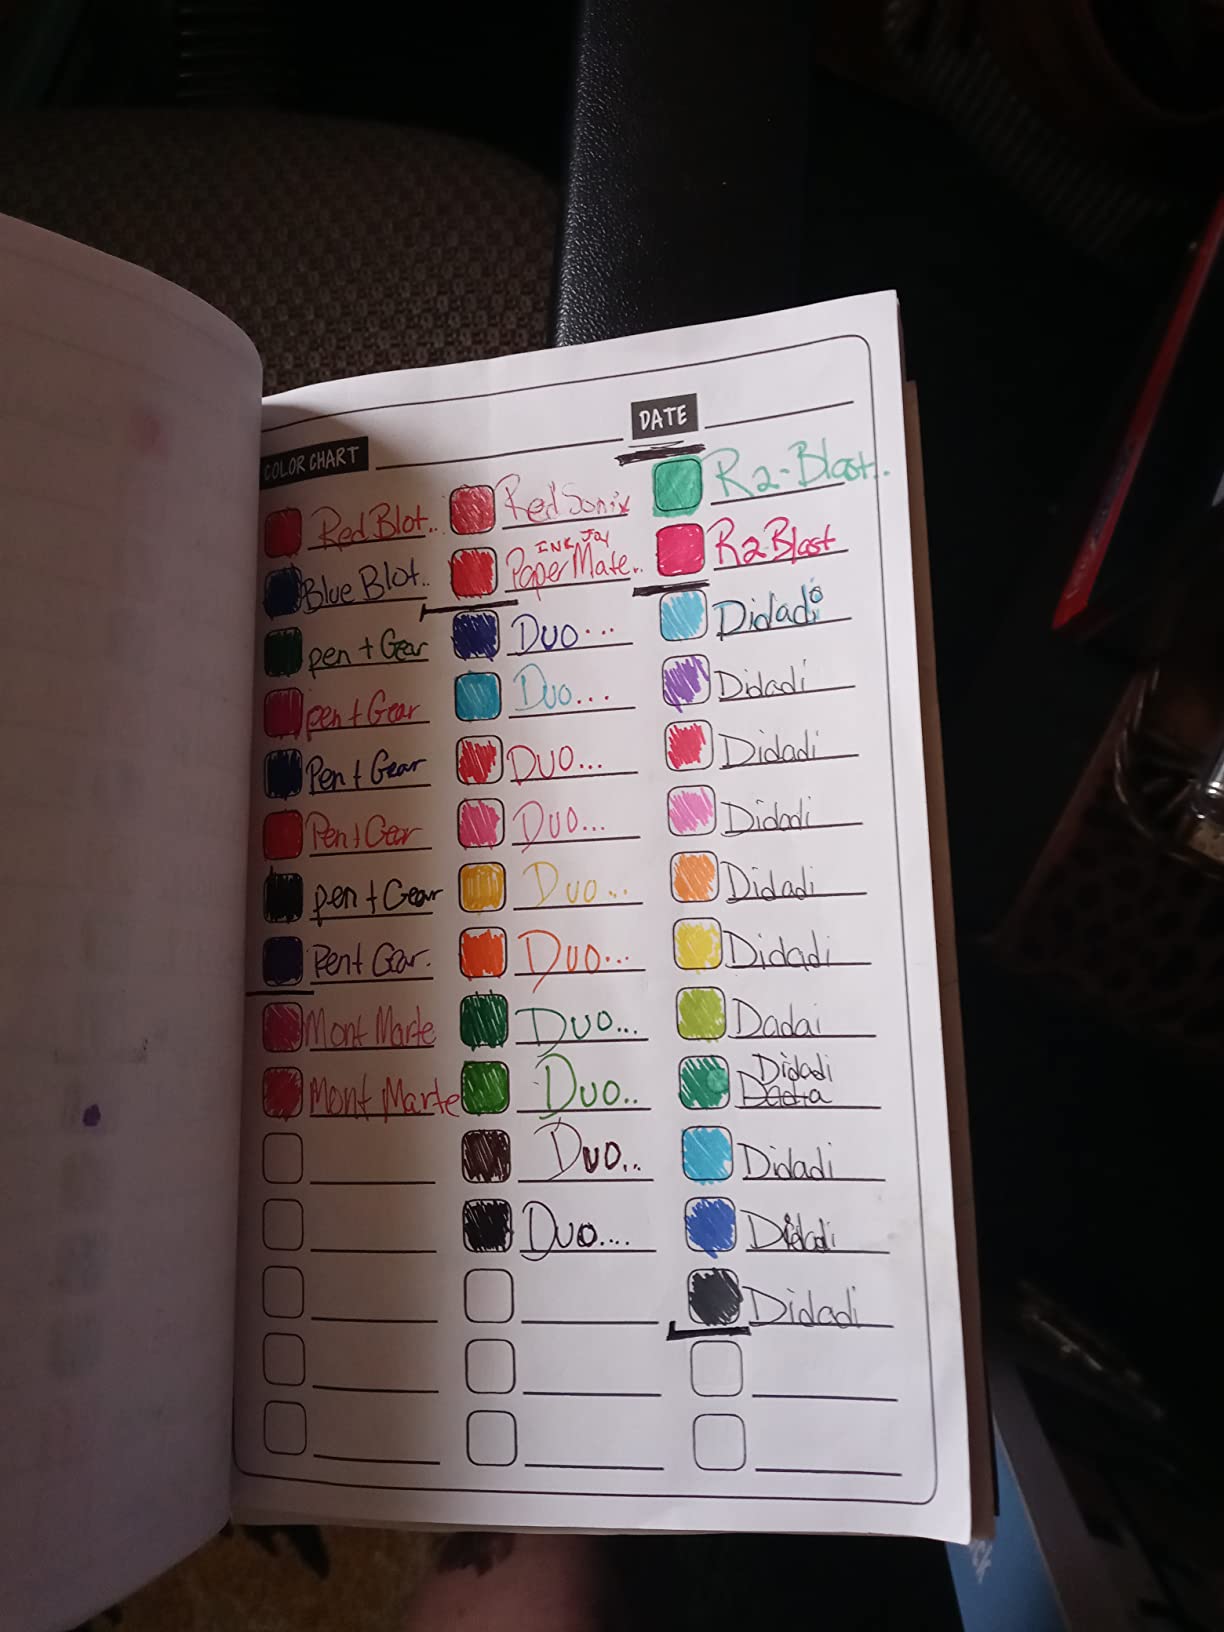 DATE
COLOR CHART
Red Blot..
Blue Blot..
pen + Gear
pen + Gear
Pen + Gear
Pen + Gear
pen + Gear
Pen + Gear.
Mont Marte
Mont Marte
Red Sonix
INK Joy
Paper Mate..
Duo...
Duo...
Duo...
Duo...
Duo...
Duo...
Duo...
Duo..
Duo...
Duo....
R2-Blast..
R2-Blast
Didadi
Didadi
Didadi
Didadi
Didadi
Didadi
Dadai
Didadi
Didadi
Didadi
Didadi